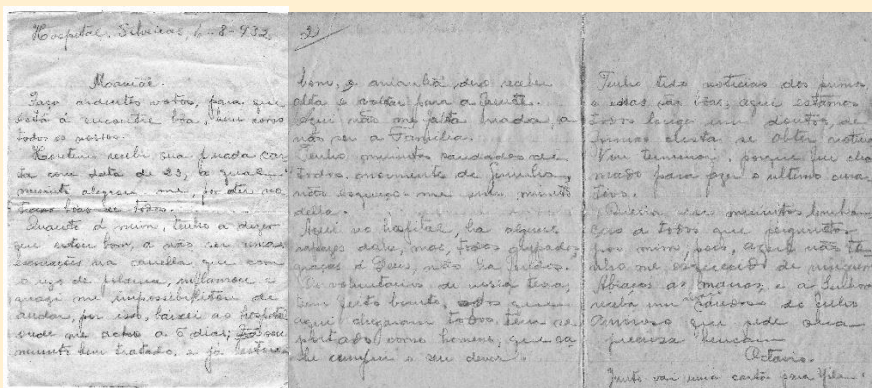 Hospital. Silveiras, 6-8-932.
Mamãe.
Faço ardentes votos, para que
está á encontre bôa, bem como
todos os nossos.
Hontem recebi sua prezada car
ta com data de 23, a qual
muito alegrou me, por ter no
ticias bôas de todos.
Quanto á mim, tenho a dizer
que estou bom, a não ser umas
na canella que com
o uzo de inflamou e
quazi me impossibilitou de
andar, por isso, baixei ao hospital
onde me acho a 5 dias;
muito bem tratado, e já
2)
bom, e amanhã devo receber
alta e voltar para a frente.
Aqui não me falta nada, a
não ser a Familia.
Tenho muitas saudades de
todos
não esqueço-me um minuto
della.
Aqui no hospital, ha alguns
rapazes dahi, mas, todos
graças á Deus, não ha feridos.
Os voluntarios de nossa terra,
tem feito bonito, todos que
aqui chegaram todos têm se
portado como homens, que sa
be cumprir o seu dever.
Tenho tido noticias dos primos
e essas são bôas, aqui estamos
todos longe um doutro, de
fórmas custa se obter noticia
Vou terminar, porque fui cha
mado para fazer o ultimo cura
tivo.
muitas lembran
ças a todos que perguntar
por mim, pois, aqui não te
nho me esquecido de ninguem
Abraços as manas, e a Senhora
receba um saudoso do filho
que pede sua
preciosa bençam
Octavio.
Junto vai uma carta para